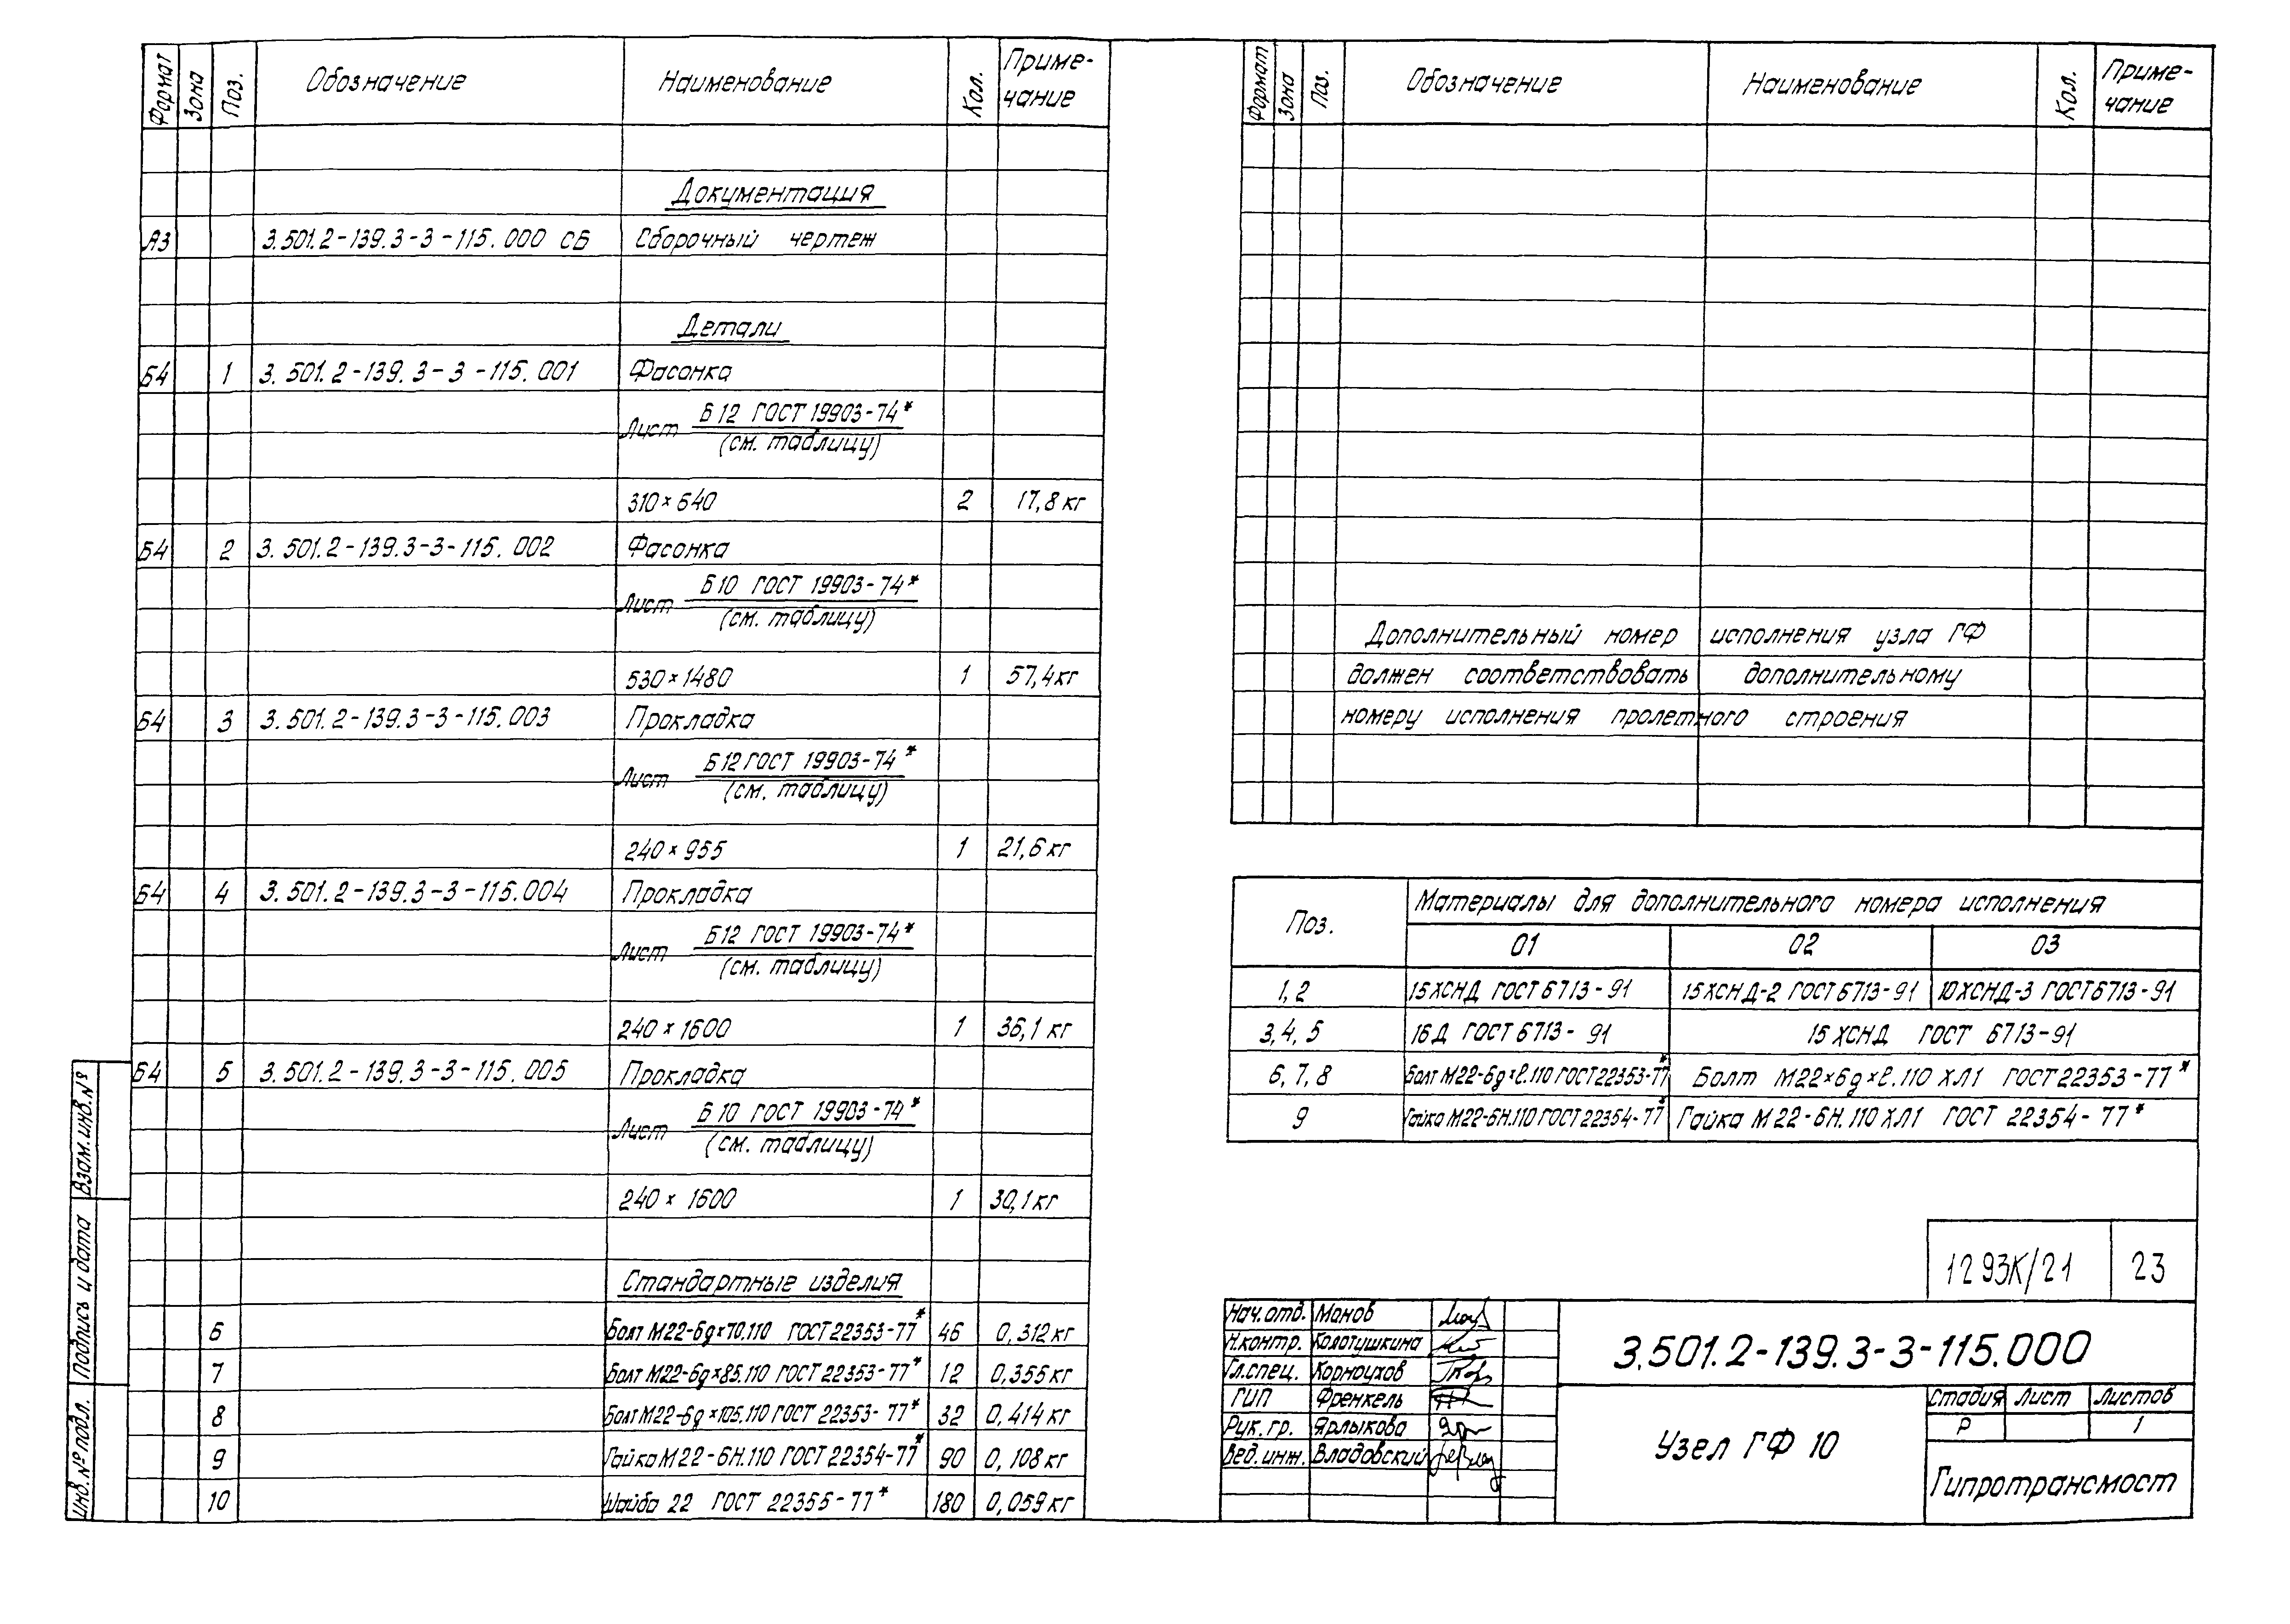 Формат Зона Поз. Обозначение Наименование Кол. Приме-
чание
Документация
А3 3.501.2-139.3-3-115.000 СБ Сборочный чертеж
Детали
Б4 1 3.501.2-139.3-3-115.001 Фасонка
Лист Б12 ГОСТ 19903-74*
(см. таблицу)
310×640 2 17,8 кг
Б4 2 3.501.2-139.3-3-115.002 Фасонка
Лист Б10 ГОСТ 19903-74*
(см. таблицу)
530×1480 1 57,4 кг
Б4 3 3.501.2-139.3-3-115.003 Прокладка
Лист Б12 ГОСТ 19903-74*
(см. таблицу)
240×955 1 21,6 кг
Б4 4 3.501.2-139.3-3-115.004 Прокладка
Лист Б12 ГОСТ 19903-74*
(см. таблицу)
240×1600 1 36,1 кг
Б4 5 3.501.2-139.3-3-115.005 Прокладка
Лист Б10 ГОСТ 19903-74*
(см. таблицу)
240×1600 1 30,1 кг
Стандартные изделия
6 Болт М22-6g×70.110 ГОСТ 22353-77* 46 0,312 кг
7 Болт М22-6g×85.110 ГОСТ 22353-77* 12 0,355 кг
8 Болт М22-6g×105.110 ГОСТ 22353-77* 32 0,414 кг
9 Гайка М22-6Н.110 ГОСТ 22354-77* 90 0,108 кг
10 Шайба 22 ГОСТ 22355-77* 180 0,059 кг
Взам.инв.№
Подпись и дата
Инв.№ подл.
Формат Зона Поз. Обозначение Наименование Кол. Приме-
чание
Дополнительный номер исполнения узла ГФ
должен соответствовать дополнительному
номеру исполнения пролетного строения
Поз. Материалы для дополнительного номера исполнения
01 02 03
1,2 15ХСНД ГОСТ 6713-91 15ХСНД-2 ГОСТ 6713-91 10ХСНД-3 ГОСТ 6713-91
3,4,5 16Д ГОСТ 6713-91 15ХСНД ГОСТ 6713-91
6,7,8 Болт М22-6g×ℓ.110 ГОСТ 22353-77* Болт М22×6g×ℓ.110 ХЛ1 ГОСТ 22353-77*
9 Гайка М22-6Н.110 ГОСТ 22354-77* Гайка М22-6Н.110 ХЛ1 ГОСТ 22354-77*
1293К/21 23
Нач.отд. Монов
Н.контр. Колотушкина
Гл.спец. Корноухов
ГИП Френкель
Рук.гр. Ярлыкова
Вед.инж. Владовский
3.501.2-139.3-3-115.000
Узел ГФ 10
Стадия Лист Листов
Р 1
Гипротрансмост